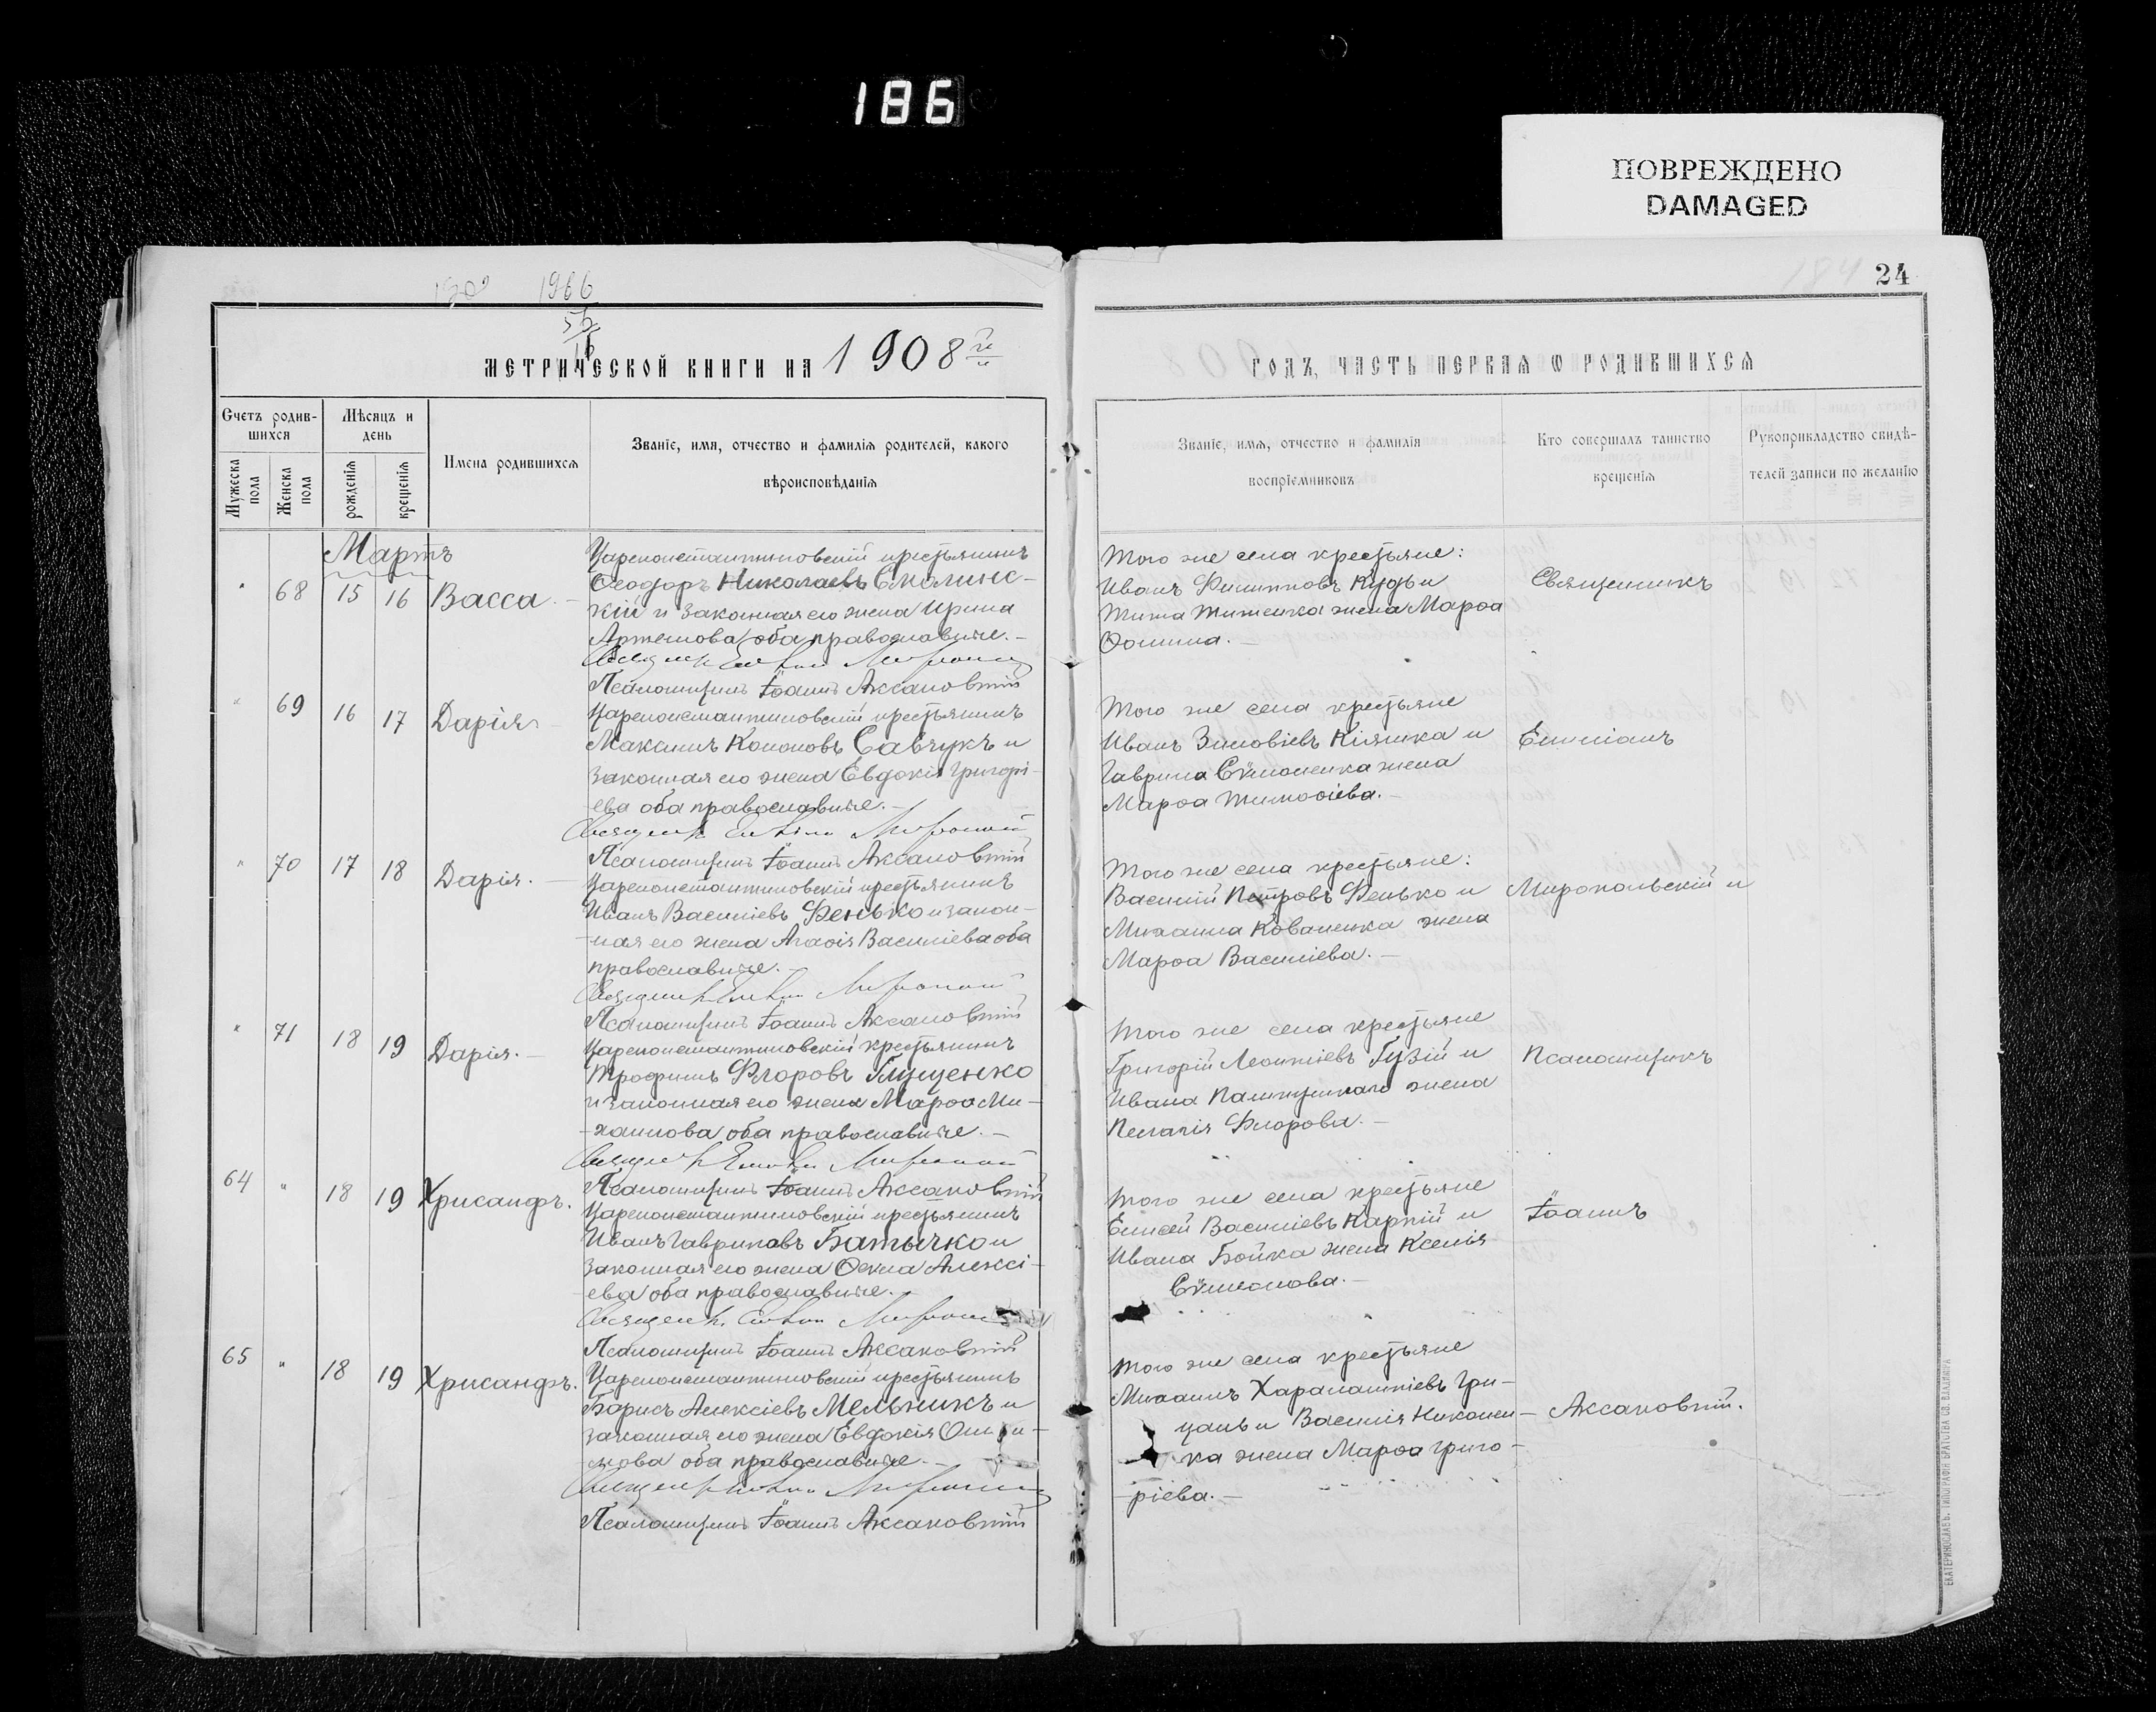 186
ПОВРЕЖДЕНО
DAMAGED
1966
24
МЕТРИЧЕСКОЙ КНИГИ НА 1908й
ГОДЪ, ЧАСТЬ ПЕРВАЯ Ѡ РОДИВШИХСЯ
Счетъ родив-
шихся
Мужеска пола
Женска пола
Мѣсяцъ и
день
рожденія
крещенія
Имена родившихся
Званіе, имя, отчество и фамилія родителей, какого
вѣроисповѣданія
Званіе, имя, отчество и фамилія
воспріемниковъ
Кто совершалъ таинство
крещенія
Рукоприкладство свидѣ-
телей записи по желанію
Мартъ
" 68 15 16 Васса.
Цареконстантиновскій крестьянинъ
Ѳеодоръ Николаевъ Смолинс-
кій и законная его жена Ирина
Артемова оба православные.
Псаломщикъ Іоаннъ Аксановскій
Того же села крестьяне:
Иванъ Филипповъ Кудь и
Тита Титенка жена Марѳа
Ѳомина.
Священникъ
" 69 16 17 Дарія
Цареконстантиновскій крестьянинъ
Максимъ Кононовъ Савчукъ и
законная его жена Евдокія Григорі-
-ева оба православные.
Псаломщикъ Іоаннъ Аксановскій
Того же села крестьяне
Иванъ Зиновіевъ Кіяшка и
Гаврила Сѵмоненка жена
Марѳа Тимоѳіева.
Емиліанъ
" 70 17 18 Дарія.
Цареконстантиновскій крестьянинъ
Иванъ Василіевъ Фенько и закон-
-ная его жена Агаѳія Василіева оба
православные.
Псаломщикъ Іоаннъ Аксановскій
Того же села крестьяне:
Василій Петровъ Фенько и
Михаила Коваленка жена
Марѳа Василіева.
Миропольскій и
" 71 18 19 Дарія.
Цареконстантиновскій крестьянинъ
Трофимъ Флоровъ Глущенко
и законная его жена Марѳа Ми-
-хаилова оба православные.
Псаломщикъ Іоаннъ Аксановскій
Того же села крестьяне
Григорій Леонтіевъ Гузій и
Ивана жена
Пелагія Флорова.
Псаломщикъ
64 " 18 19 Хрисанфъ.
Цареконстантиновскій крестьянинъ
Иванъ Гавриловъ Батычко и
законная его жена Ѳекла Алексі-
-ева оба православные.
Псаломщикъ Іоаннъ Аксановскій
Того же села крестьяне
Елисей Василіевъ Карпій и
Ивана Бойка жена Ксенія
Сѵмеонова.
Іоаннъ
65 " 18 19 Хрисанфъ.
Цареконстантиновскій крестьянинъ
Борисъ Алексіевъ Мельникъ и
законная его жена Евдокія
-мова оба православные.
Псаломщикъ Іоаннъ Аксановскій
Того же села крестьяне
Михаилъ Харалампіевъ Гри-
цань и Василія Николен-
ка жена Марѳа Григо-
-ріева.
Аксановскій.
ЕКАТЕРИНОСЛАВЪ. ТИПОГРАФІЯ БРАТСТВА СВ. ВЛАДИМІРА